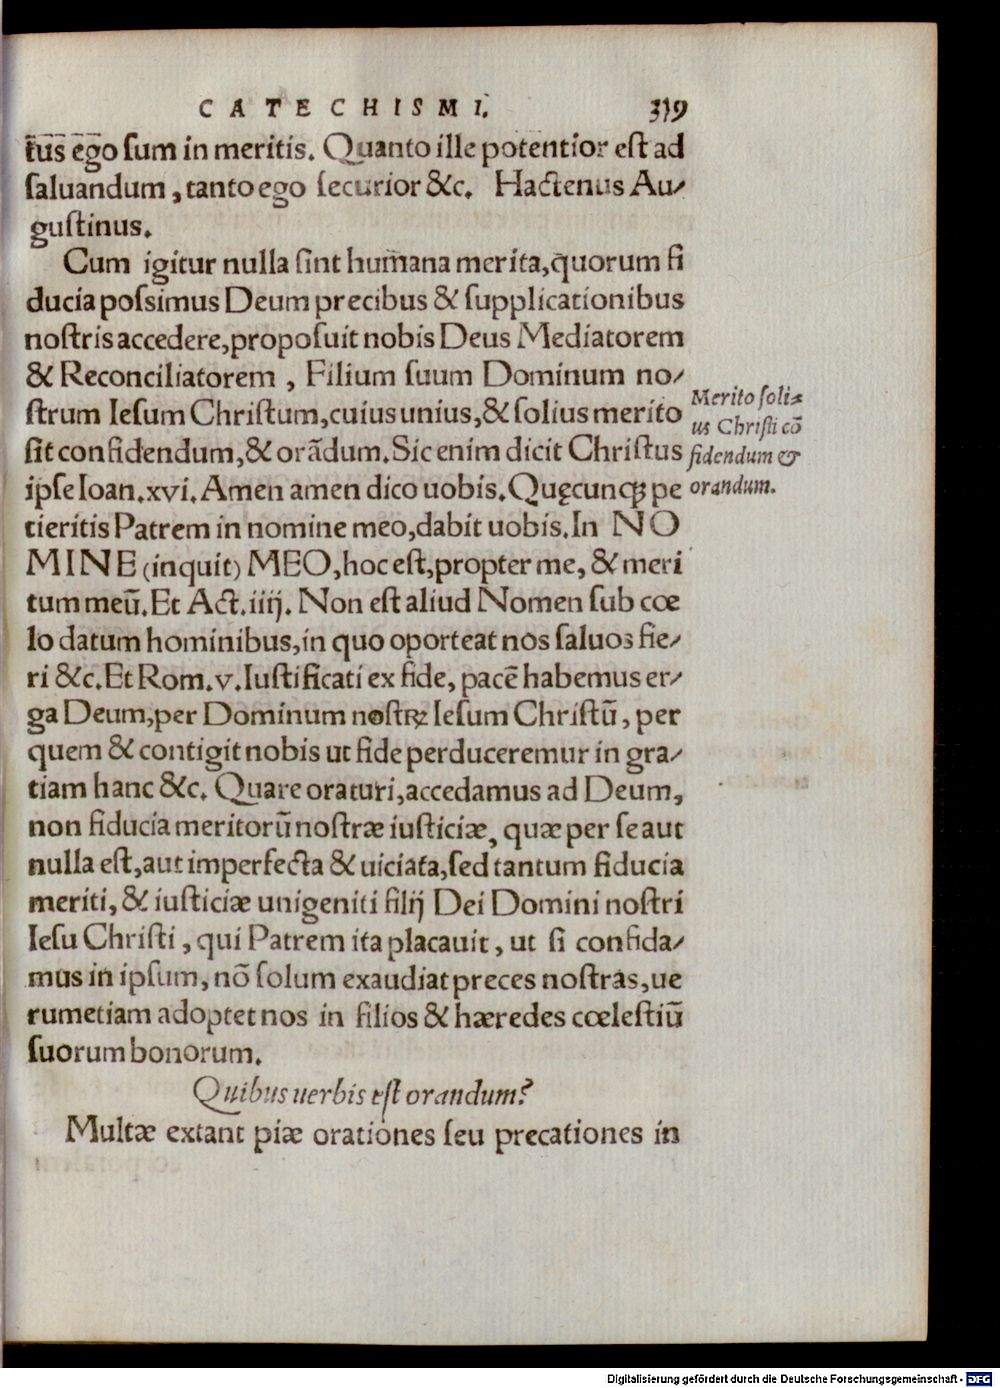 CATECHISMI. 319
tus ego sum in meritis. Quanto ille potentior est ad
saluandum, tanto ego securior &c. Hactenus Au-
gustinus.
Cum igitur nulla sint humana merita, quorum fi
ducia possimus Deum precibus & supplicationibus
nostris accedere, proposuit nobis Deus Mediatorem
& Reconciliatorem, Filium suum Dominum no-
strum Iesum Christum, cuius unius, & solius merito
sit confidendum, & orādum. Sic enim dicit Christus
ipse Ioan. xvi. Amen amen dico uobis. Quęcunqȝ pe
tieritis Patrem in nomine meo, dabit uobis. In NO
MINE (inquit) MEO, hoc est, propter me, & meri
tum meū. Et Act. iiij. Non est aliud Nomen sub cœ
lo datum hominibus, in quo oporteat nos saluos fie-
ri &c. Et Rom. v. Iustificati ex fide, pacē habemus er-
ga Deum, per Dominum nostrꝝ Iesum Christū, per
quem & contigit nobis ut fide perduceremur in gra-
tiam hanc &c. Quare oraturi, accedamus ad Deum,
non fiducia meritorū nostræ iusticiæ, quæ per se aut
nulla est, aut imperfecta & uiciata, sed tantum fiducia
meriti, & iusticiæ unigeniti filij Dei Domini nostri
Iesu Christi, qui Patrem ita placauit, ut si confida-
mus in ipsum, nō solum exaudiat preces nostras, ue
rumetiam adoptet nos in filios & hæredes cœlestiū
suorum bonorum.
Quibus uerbis est orandum?
Multæ extant piæ orationes seu precationes in
Merito soli-
us Christi cō
fidendum &
orandum.
Digitalisierung gefördert durch die Deutsche Forschungsgemeinschaft - DFG